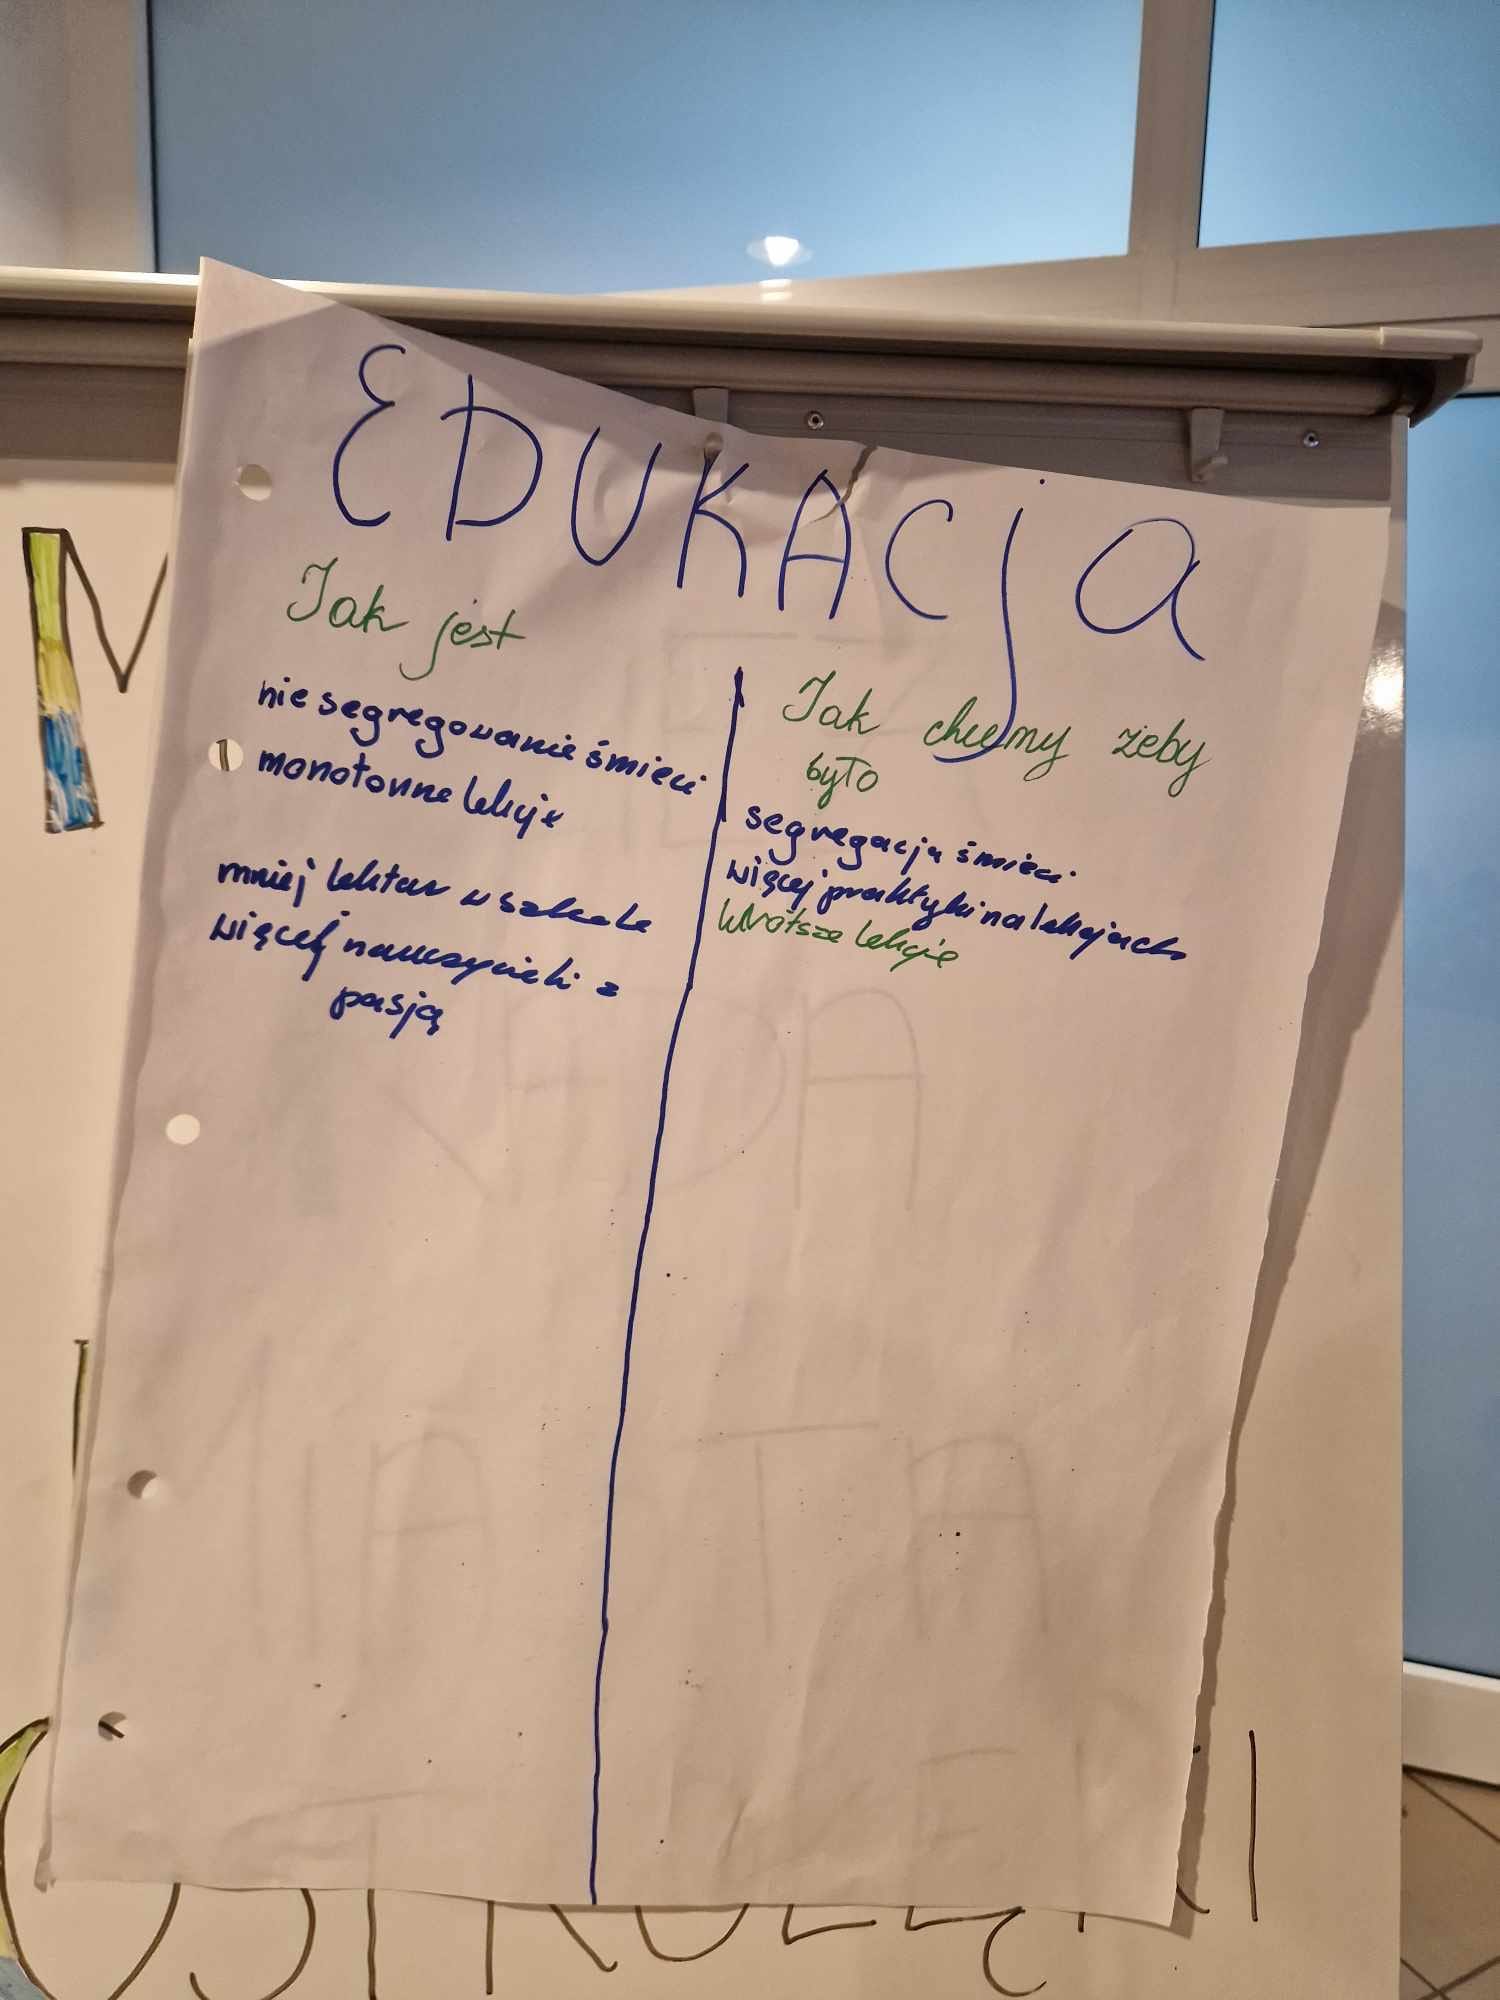 EDUKACJA
Jak jest
nie segregowanie śmieci
monotonne lekcje
mniej lektur w szkole
więcej nauczycieli z
pasją
Jak chcemy żeby
było
segregacja śmieci
więcej praktyki na lekcjach
krótsze lekcje
M